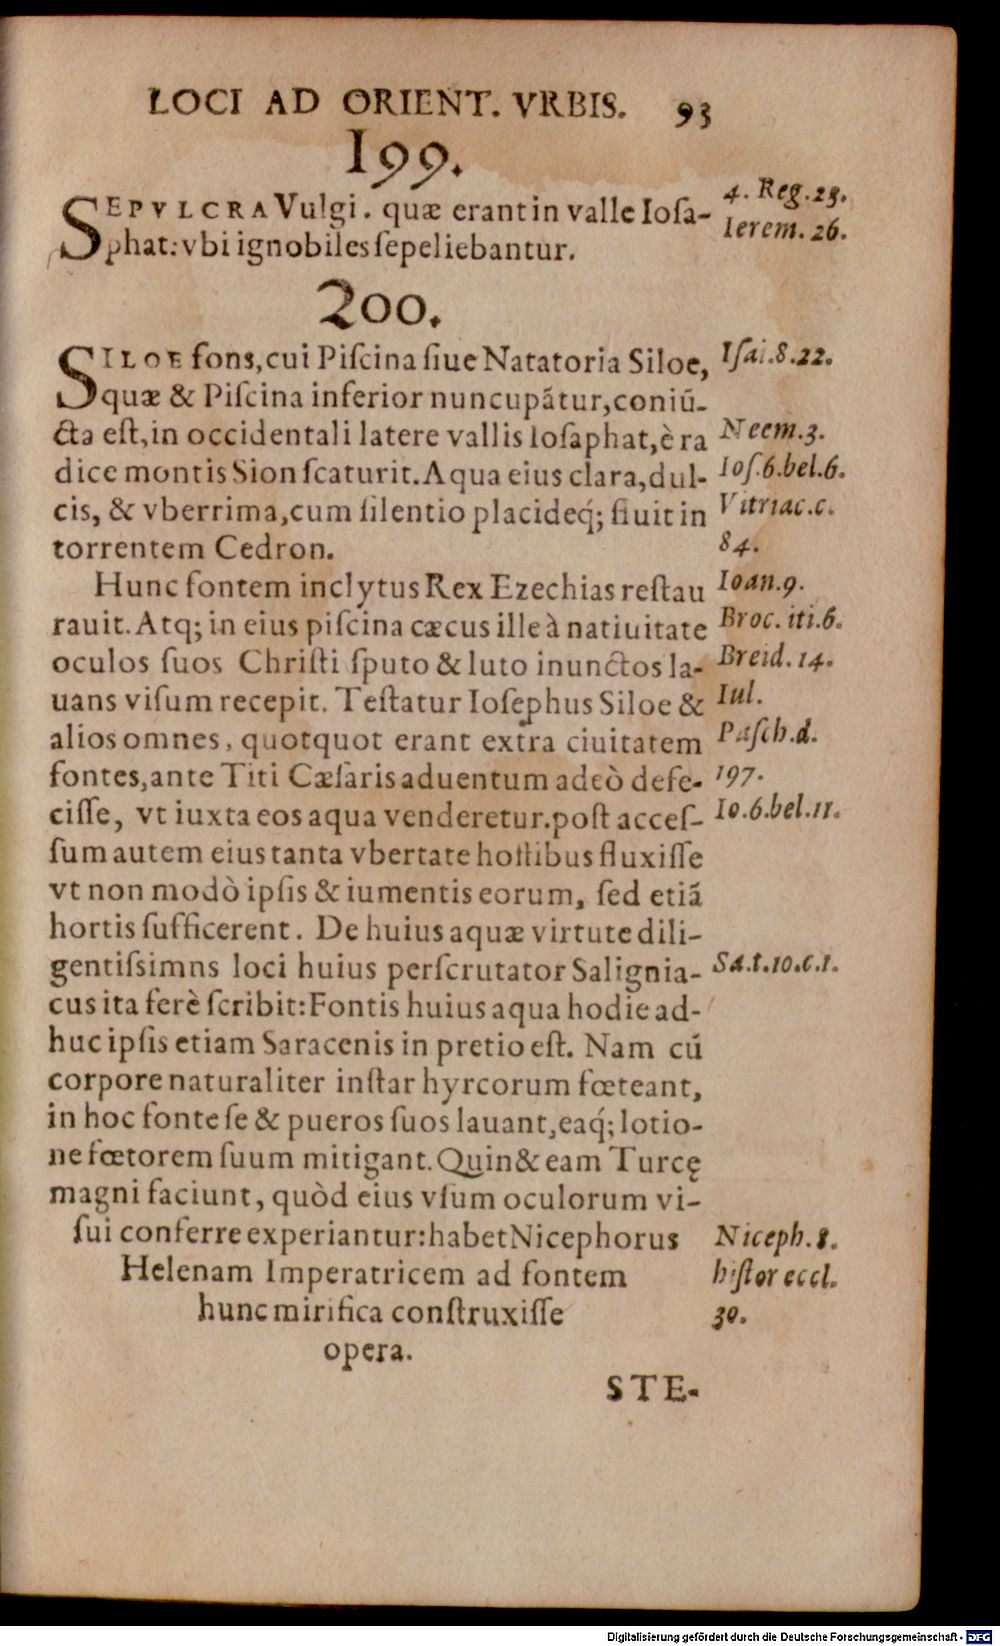 LOCI AD ORIENT. VRBIS. 93
199.
SEPVLCRA Vulgi. quæ erant in valle Ioſa-
phat: vbi ignobiles ſepeliebantur.
4. Reg. 23.
Ierem. 26.
200.
SILOE fons, cui Piſcina ſiue Natatoria Siloe,
quæ & Piſcina inferior nuncupãtur, coniũ-
cta eſt, in occidentali latere vallis Ioſaphat, è ra
dice montis Sion ſcaturit. Aqua eius clara, dul-
cis, & vberrima, cum ſilentio placideq́; fluit in
torrentem Cedron.
Iſai. 8. 22.
Neem. 3.
Ioſ. 6. bel. 6.
Vitriac. c.
84.
Hunc fontem inclytus Rex Ezechias reſtau
rauit. Atq; in eius piſcina cæcus ille à natiuitate
oculos ſuos Chriſti ſputo & luto inunctos la-
uans viſum recepit. Teſtatur Ioſephus Siloe &
alios omnes, quotquot erant extra ciuitatem
fontes, ante Titi Cæſaris aduentum adeò defe-
ciſſe, vt iuxta eos aqua venderetur. poſt acceſ-
ſum autem eius tanta vbertate hoſtibus fluxiſſe
vt non modò ipſis & iumentis eorum, ſed etiã
hortis ſufficerent. De huius aquæ virtute dili-
gentiſsimns loci huius perſcrutator Salignia-
cus ita ferè ſcribit: Fontis huius aqua hodie ad-
huc ipſis etiam Saracenis in pretio eſt. Nam cũ
corpore naturaliter inſtar hyrcorum fœteant,
in hoc fonte ſe & pueros ſuos lauant, eaq́; lotio-
ne fœtorem ſuum mitigant. Quin & eam Turcę
magni faciunt, quòd eius vſum oculorum vi-
ſui conferre experiantur: habet Nicephorus
Helenam Imperatricem ad fontem
hunc mirifica conſtruxiſſe
opera.
Ioan. 9.
Broc. iti. 6.
Breid. 14.
Iul.
Paſch. d.
197.
Io. 6. bel. 11.
Sa. t. 10. c. 1.
Niceph. 8.
hiſtor eccl.
30.
STE-
Digitalisierung gefördert durch die Deutsche Forschungsgemeinschaft - DFG